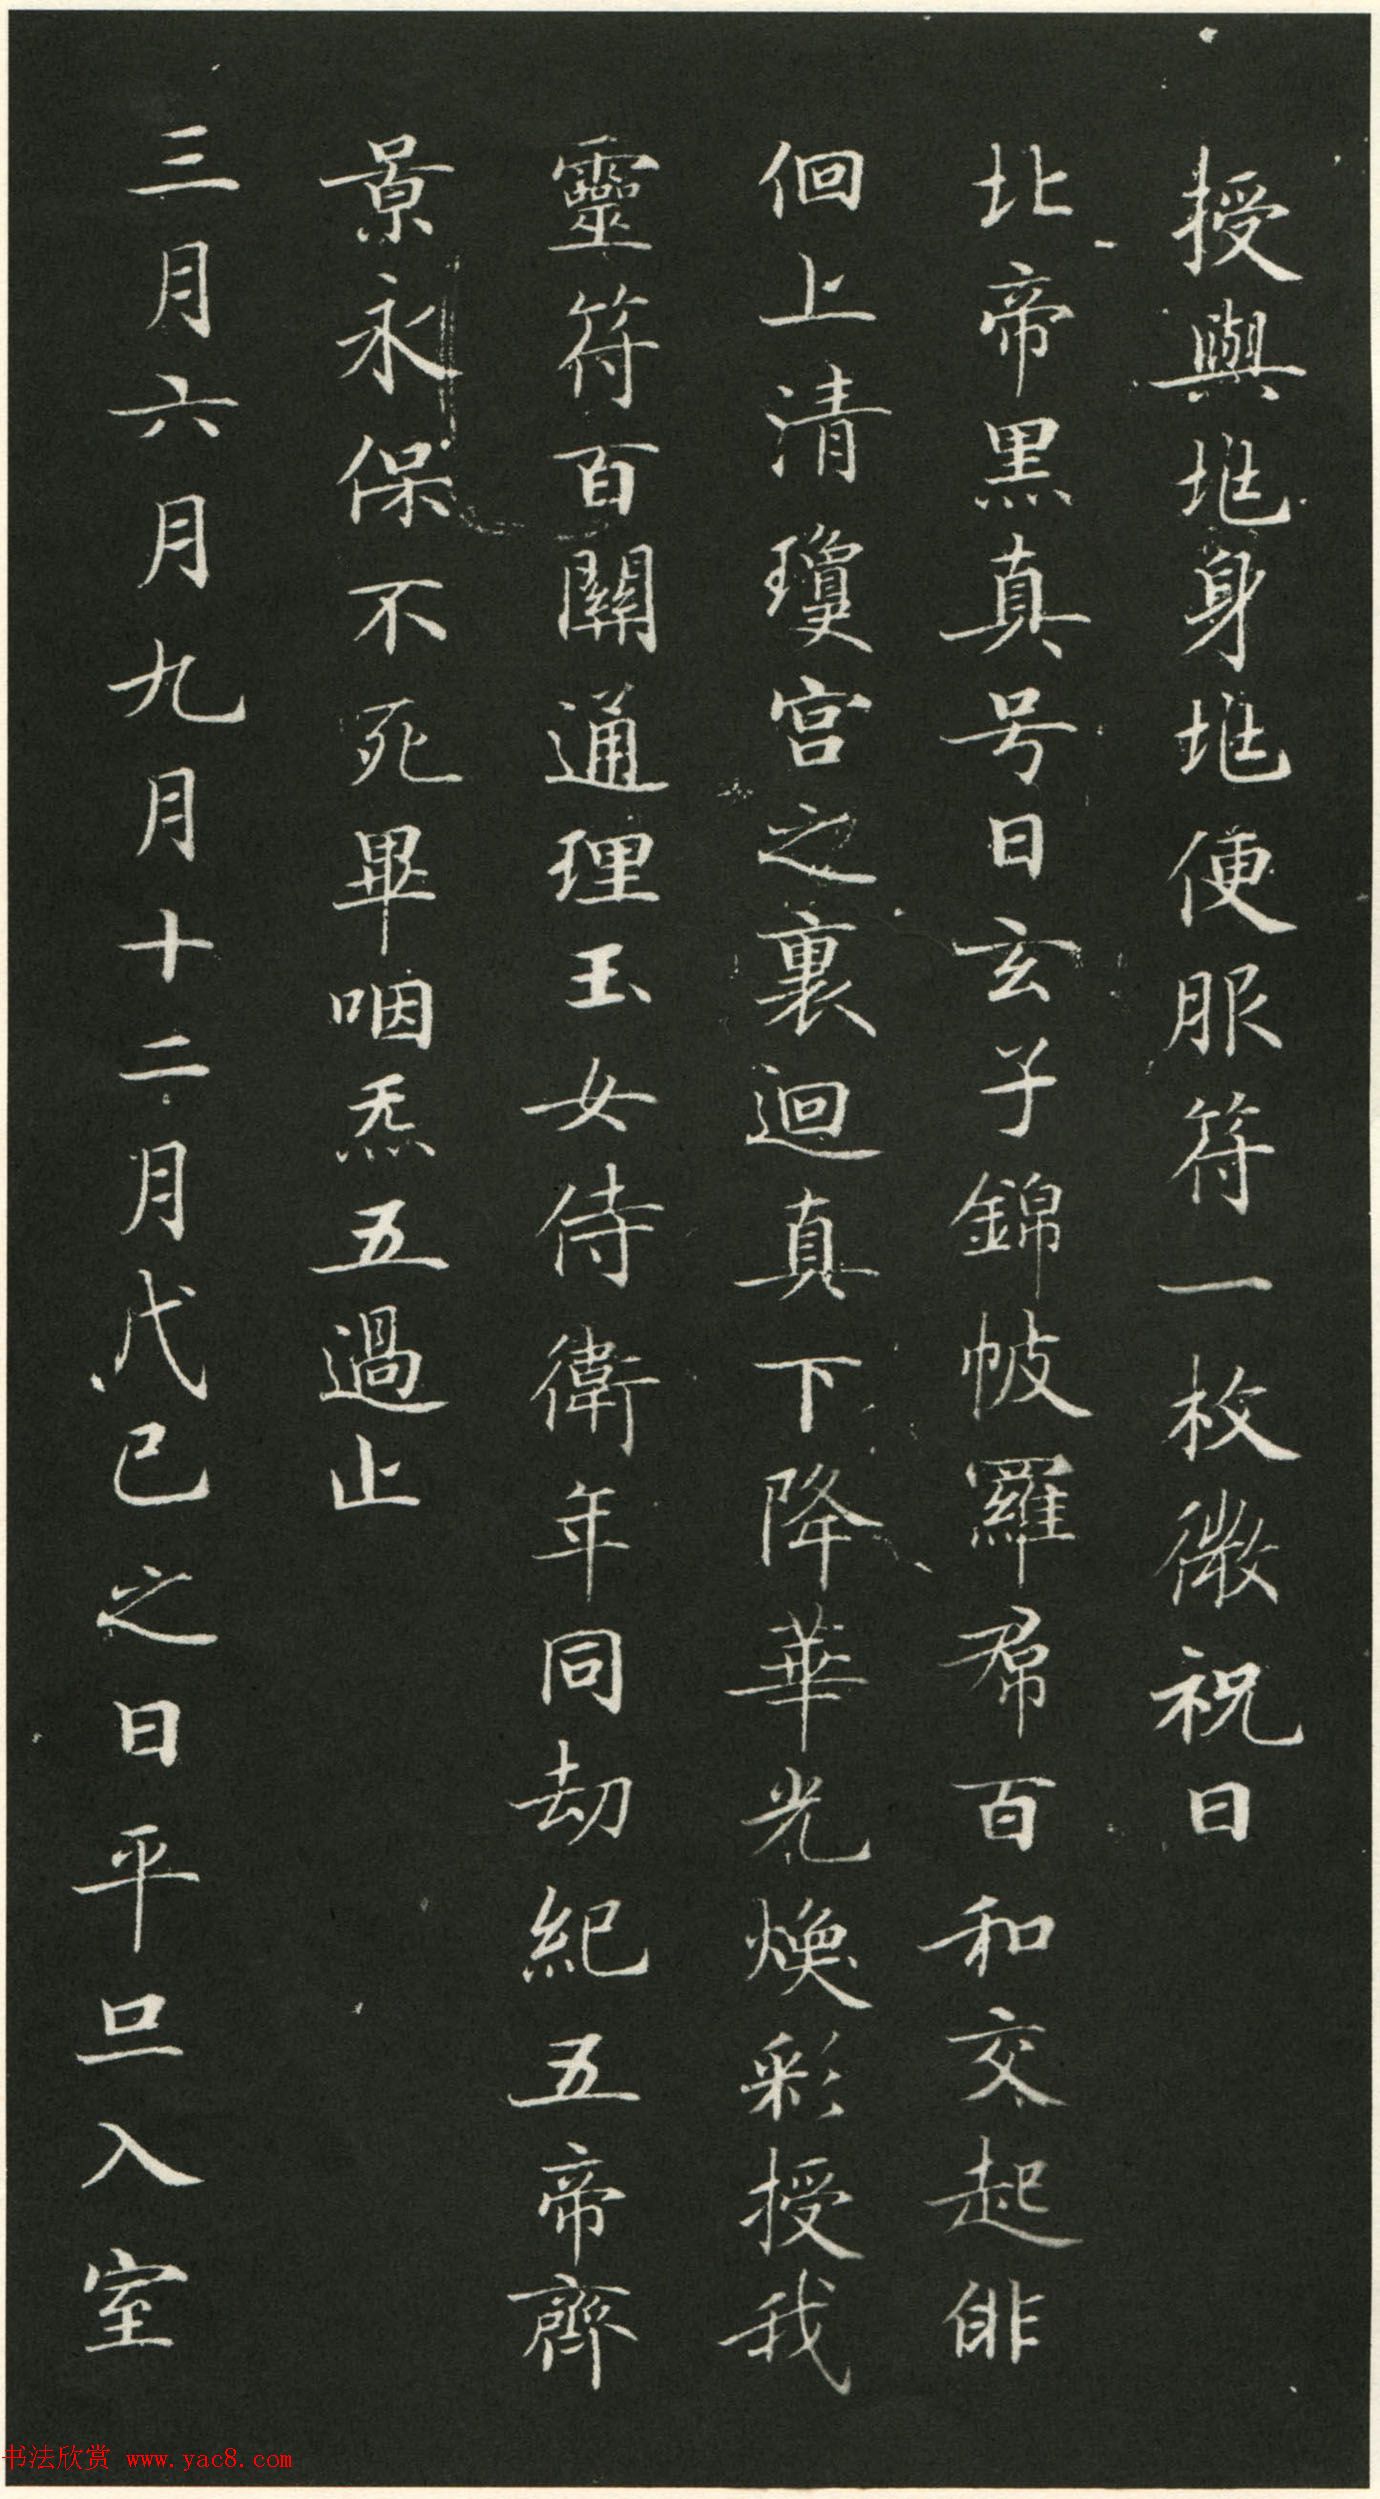 授與兆身兆便服符一枚微祝曰
北帝黑真号曰玄子錦帔羅帬百和交起俳
佪上清瓊宮之裏迴真下降華光煥彩授我
靈符百關通理玉女侍衛年同劫紀五帝齊
景永保不死畢咽炁五過止
三月六月九月十二月戊己之日平旦入室
书法欣赏 www.yac8.com